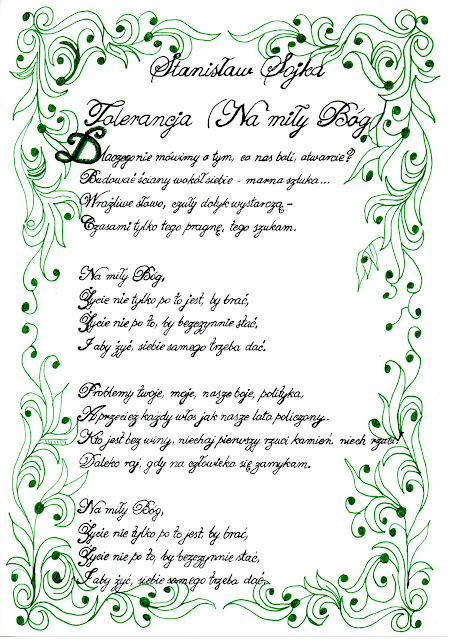 Stanisław Sojka
Tolerancja (Na miły Bóg)
Dlaczego nie mówimy o tym, co nas boli, otwarcie?
Budować ściany wokół siebie - marna sztuka...
Wrażliwe słowo, czuły dotyk wystarczą -
Czasami tylko tego pragnę, tego szukam.
Na miły Bóg,
Życie nie tylko po to jest, by brać,
Życie nie po to, by bezczynnie stać,
I aby żyć, siebie samego trzeba dać.
Problemy twoje, moje, nasze boje, polityka,
A przecież każdy włos jak nasze lata policzony.
Kto jest bez winy, niechaj pierwszy rzuci kamień, niech rzuci!
Daleko raj, gdy na człowieka się zamykam.
Na miły Bóg,
Życie nie tylko po to jest by brać,
Życie nie po to, by bezczynnie stać,
I aby żyć, siebie samego trzeba dać.